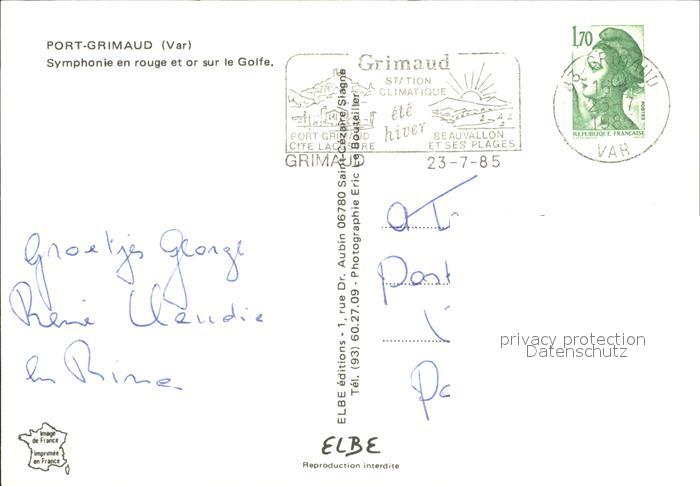 PORT-GRIMAUD (Var)
Symphonie en rouge et or sur le Golfe.
Grimaud
STATION
CLIMATIQUE
été
hiver
PORT GRIMAUD
CITE LACUSTRE
BEAUVALLON
ET SES PLAGES
GRIMAUD
23-7-85
1,70
POSTES
REPUBLIQUE FRANÇAISE
83 GRIMAUD
VAR
Groetjes George
René Claudie
en Rina
ELBE éditions - 1, rue Dr. Aubin 06780 Saint-Cézaire/Siagne
Tél. (93) 60.27.09 - Photographie Eric Le Bouteiller
privacy protection
Datenschutz
Image
de France
Imprimée
en France
ELBE
Reproduction interdite